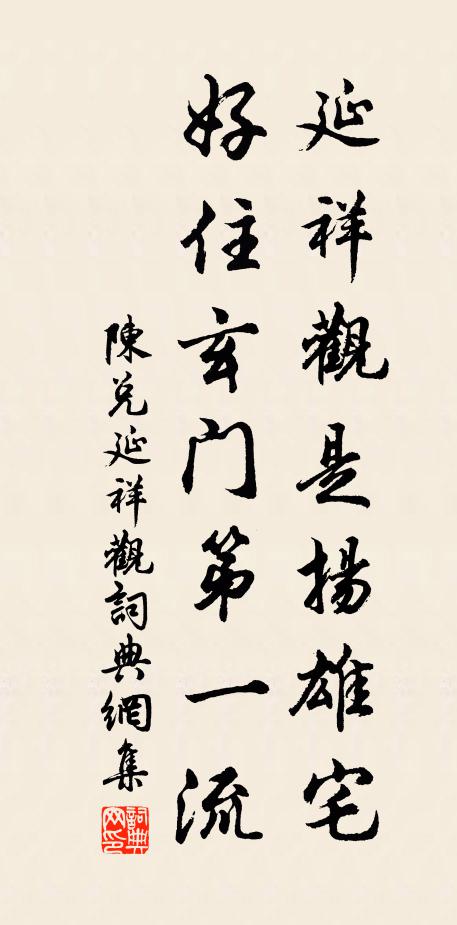 延祥觀是揚雄宅
好住玄門第一流
陳兌延祥觀詞典網集
詞典
网印